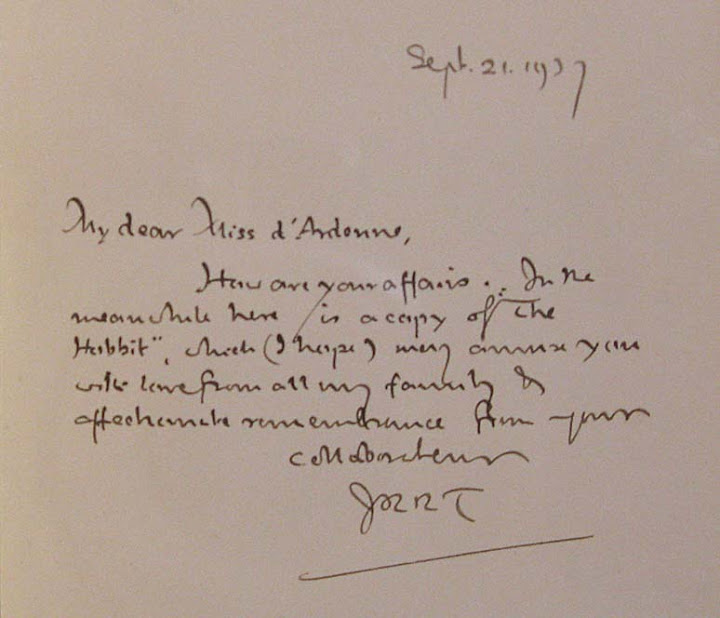 Sept. 21. 1937
My dear Miss d'Ardenne,
How are your affairs . : In the
meanwhile here is a copy of The
Hobbit", which (I hope) may amuse you
with love from all my family &
affectionate remembrance from your
collaborateur
JRRT